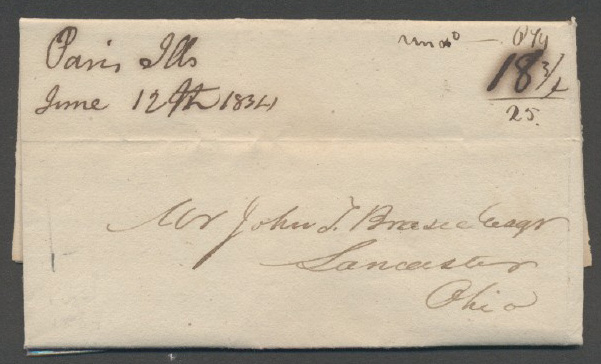 Paris Ills
June 12th 1834
18 3/4
25.
Mr John T. Brasee Esqr
Lancaster
Ohio